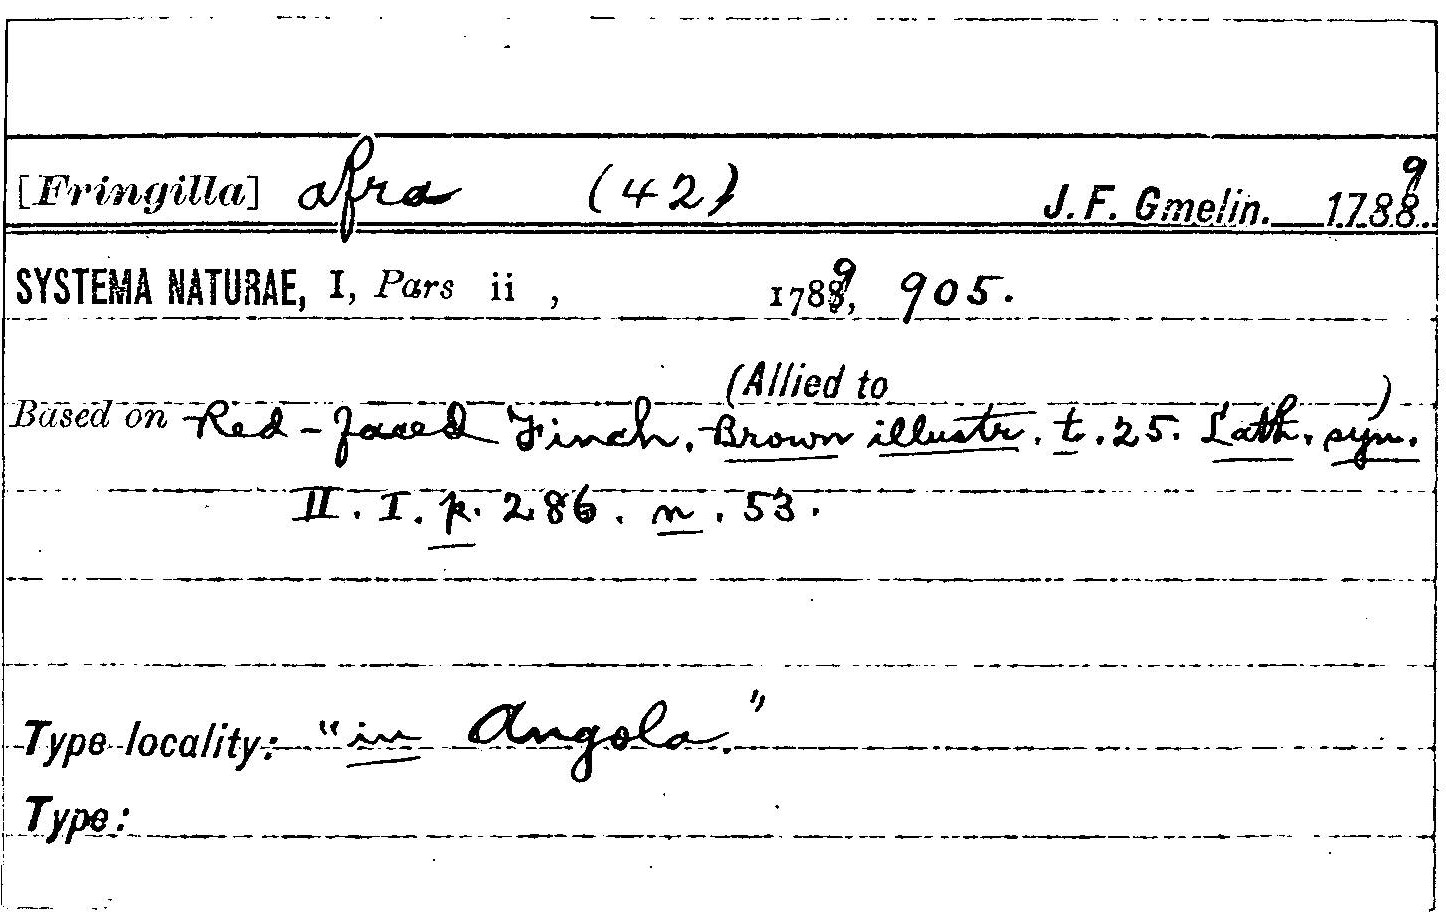 [Fringilla] afra (42) J. F. Gmelin. 1788 9
SYSTEMA NATURAE, I, Pars ii , 1788 9, 905.
(Allied to )
Based on Red-faced Finch. Brown illustr. t. 25. Lath. syn.
II. I. p. 286. n. 53.
Type locality: "in Angola."
Type: